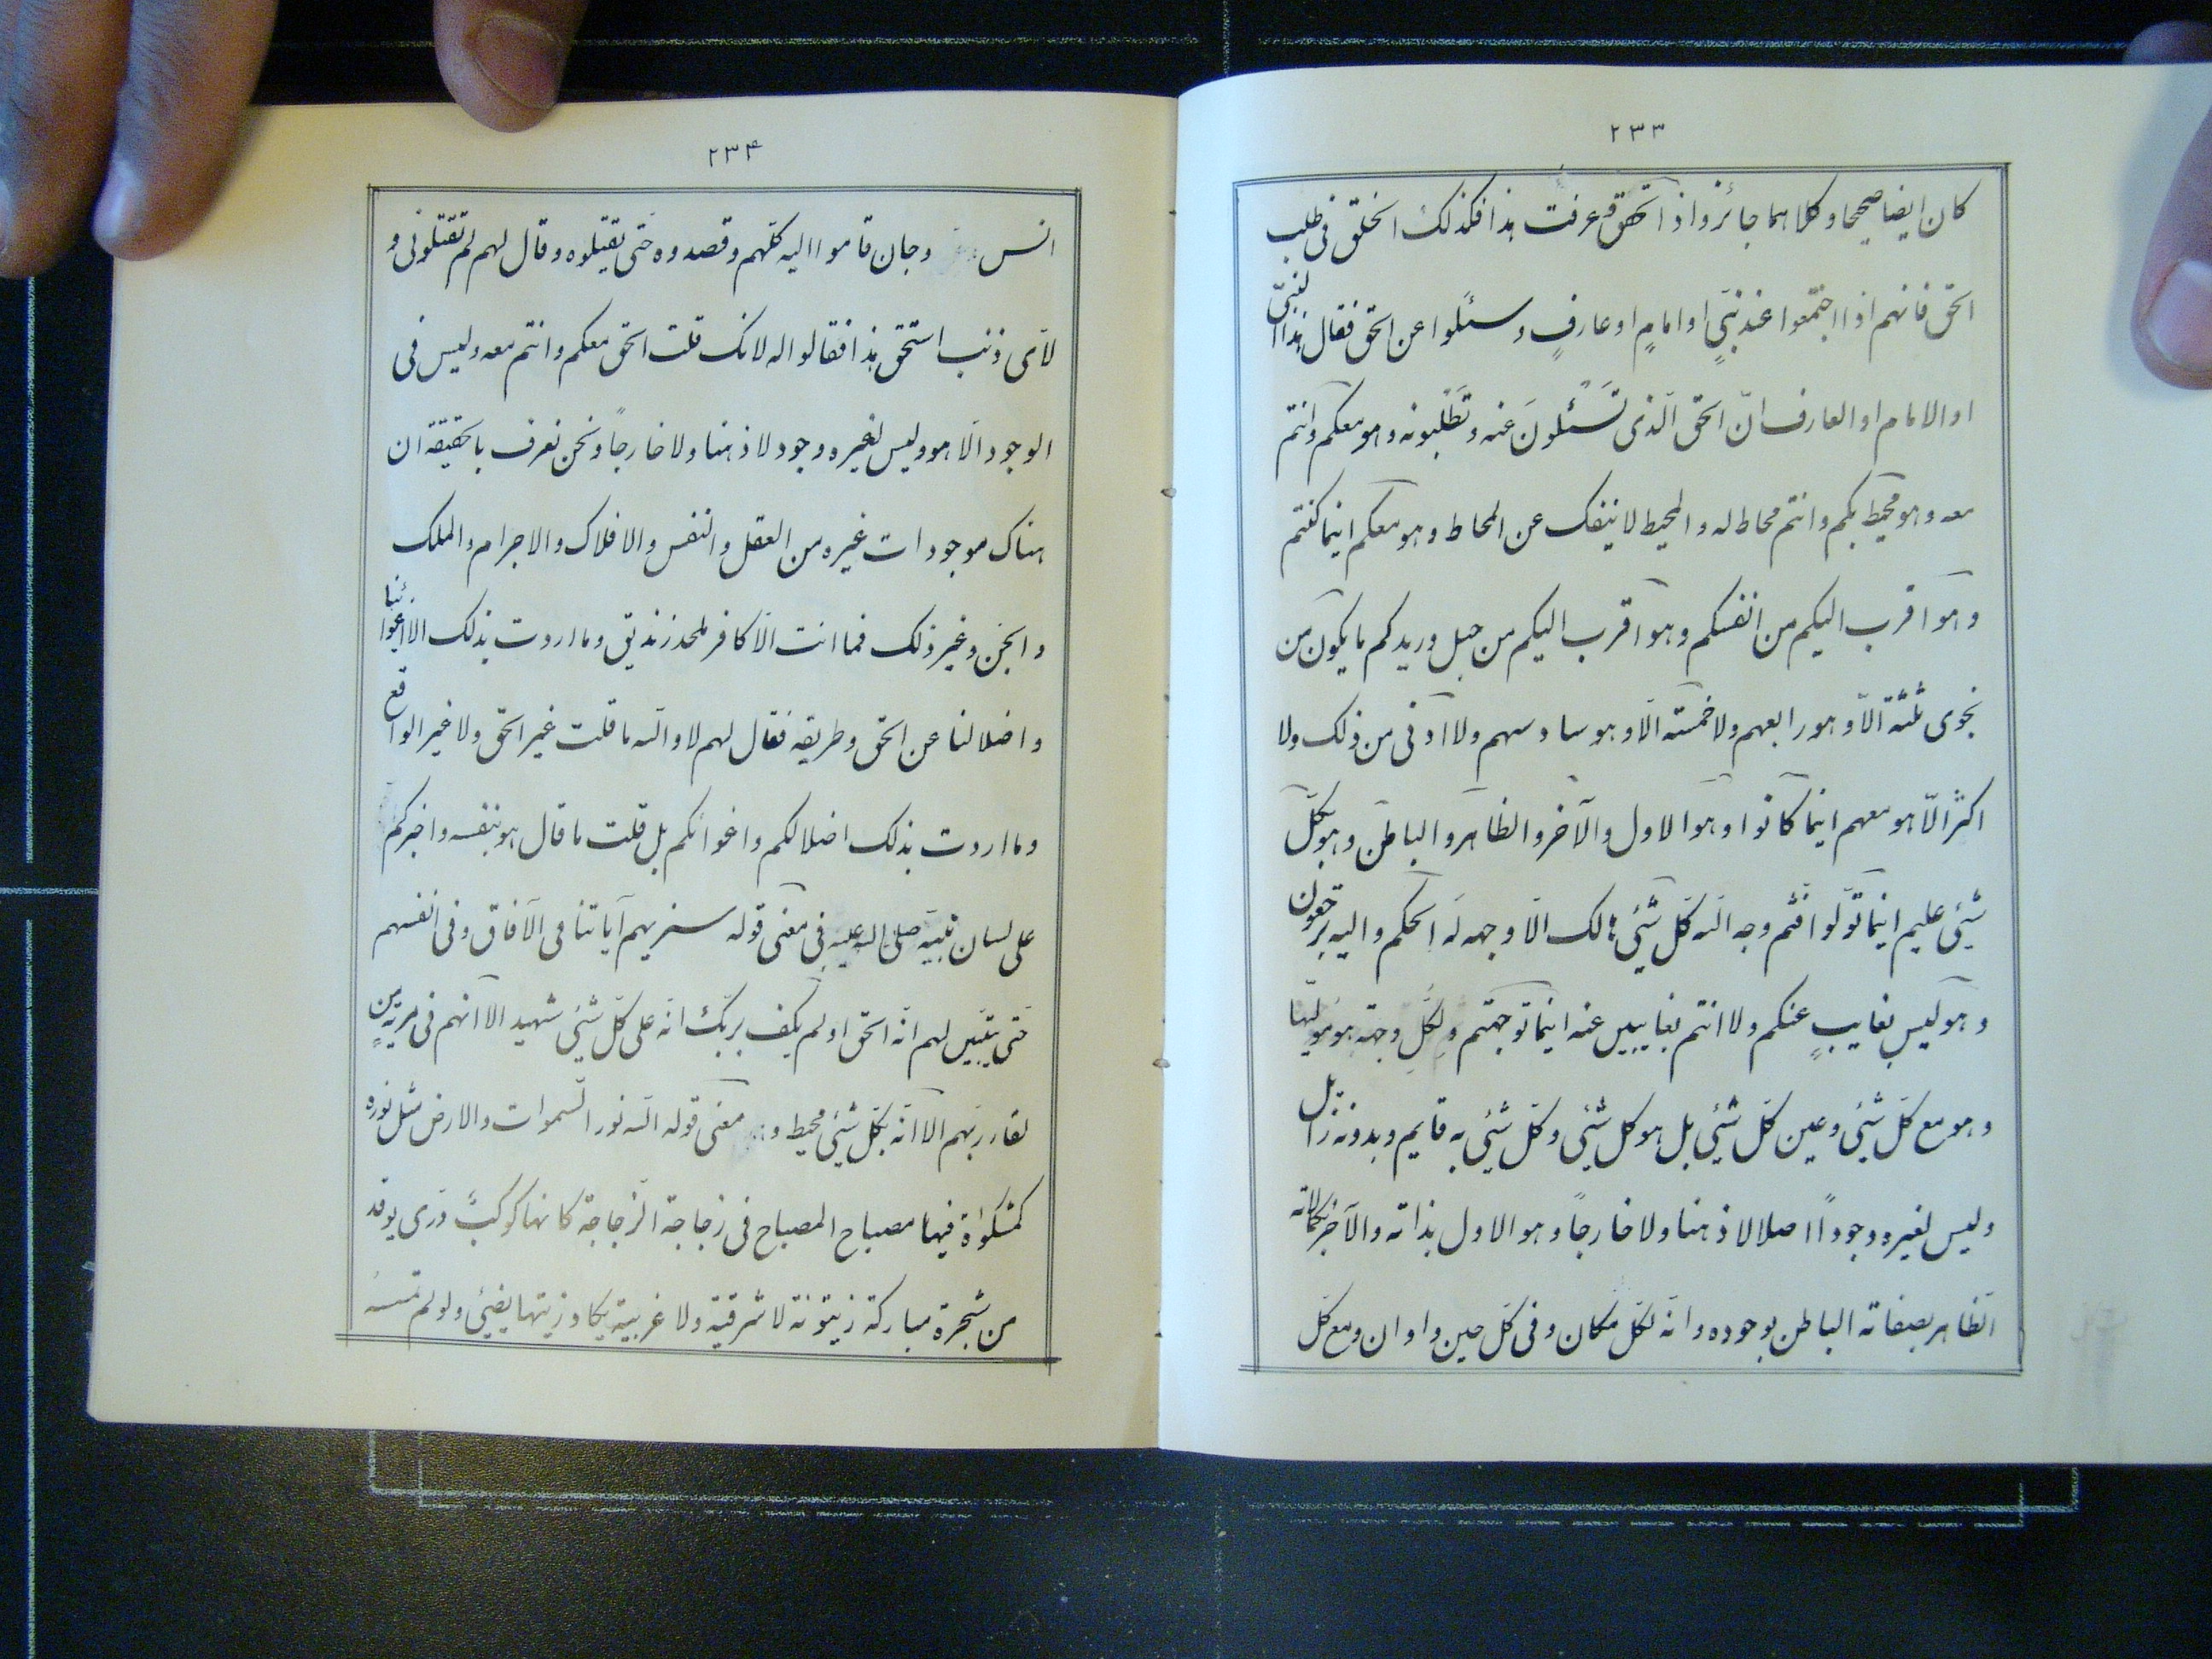 ٢٣٣
كان ايضا صحيحا وكلاهما جائز واذا تحقق عرفت هذا فكذلك الخلق فى طلب
الحق فانهم اذا اجتمعوا عند نبىٍ او امامٍ او عارفٍ وسئلوا عن الحق فقال هذا النبىّ
او الامام او العارف انّ الحق الّذى تسئلونَ عنه وتطلبونه وهو معكم وانتم
معه وهو محيط بكم وانتم محاط له والمحيط لا ينفك عن المحاط وهو معكم اينما كنتم
وهو اقرب اليكم من انفسكم وهو اقرب اليكم من حبل وريدكم ما يكون من
نجوى ثلثة الّا وهو رابعهم ولا خمسة الّا وهو سادسهم ولا ادنى من ذلك ولا
اكثر الّا هو معهم اينما كانوا وهو الاول والآخر والظاهر والباطن وهو بكلّ
شيئى عليم اينما تولّوا فثم وجه الله كلّ شيئى هالك الّا وجهه له الحكم واليه ترجعون
وهو ليس بغايبٍ عنكم ولا انتم بغايبين عنه اينما توجهتم ولكلّ وجهة هو موليّها
وهو مع كلّ شيئى وعين كلّ شيئى بل هو كل شيئى وكلّ شيئى به قايم وبدونه زايل
وليس لغيره وجوداً اصلا لا ذهنا ولا خارجاً وهو الاول بذاته والآخر بكمالاته
الظاهر بصفاته الباطن بوجوده وانّه لكلّ مكان وفى كلّ حين واوان ومع كلّ
٢٣۴
انس وجان قاموا اليه كلّهم وقصدوه حتّى يقتلوه وقال لهم لم تقتلونى و
لاّى ذنب استحق هذا فقالوا له لانك قلت الحق معكم وانتم معه وليس فى
الوجود الّا هو وليس لغيره وجود لا ذهنا ولا خارجاً ونحن نعرف بالحقيقة ان
هناك موجودات غيره من العقل والنفس والافلاك والاجرام والملك
والجن وغير ذلك فما انت الّا كافر ملحد زنديق وما اردت بذلك الا اغوائنا
واضلالنا عن الحق وطريقه فقال لهم لا والله ما قلت غير الحق ولا غير الواقع
وما اردت بذلك اضلالكم واغوائكم بل قلت ما قال هو بنفسه واخبركم
على لسان نبيّه صلى الله عليه فى معنى قوله سنريهم آياتنا فى الآفاق وفى انفسهم
حتّى يتبيّن لهم انّه الحق اولم يكف بربّك انّه على كلّ شيئى شهيد الا انهم فى مريةٍ من
لقاء ربّهم الا انّه بكلّ شيئى محيط و معنى قوله الله نور السّموات والارض مثل نوره
كمشكوٰة فيها مصباح المصباح فى زجاجة الزّجاجة كانها كوكبٌ درّى يوقد
من شجرة مباركة زيتونة لا شرقية ولا غربية يكاد زيتها يضيئى ولو لم تمسسه